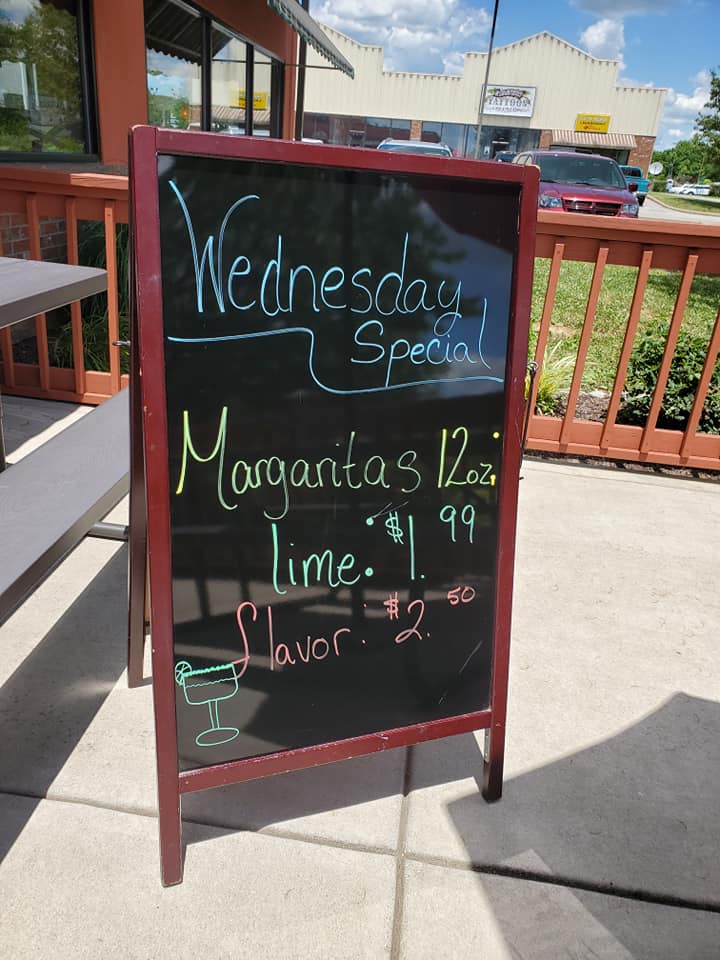 TATTOOS
Wednesday
Special
Margaritas 12oz.
lime. $1.99
flavor: $2.50